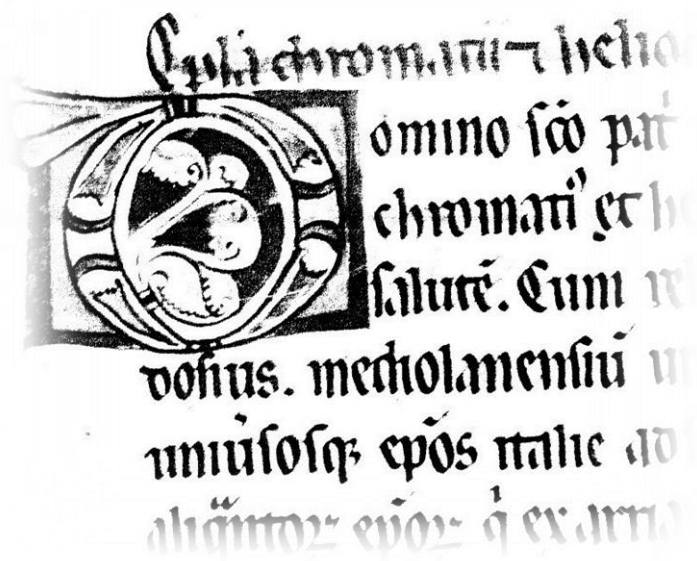 Eplā chromatii ⁊ helio
Domino sc̄o pat̄
chromati᾿ et h
salutē. Cum re
dosius. mediolanensiū
uniūsosq; ep̄os italie ad
aliq̄ntoꝝ ep̄oꝝ q̄ ex